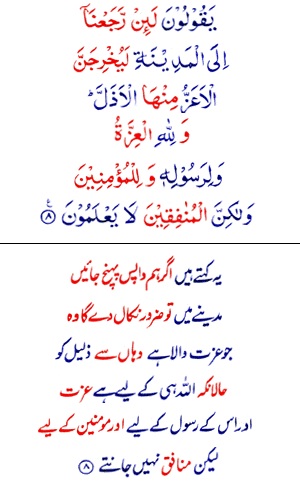 يَقُوْلُوْنَ لَىِٕنْ رَّجَعْنَاۤ
اِلَى الْمَدِيْنَةِ لَيُخْرِجَنَّ
الْاَعَزُّ مِنْهَا الْاَذَلَّ ؕ
وَ لِلّٰهِ الْعِزَّةُ
وَلِرَسُوْلِهٖ وَ لِلْمُؤْمِنِيْنَ
وَلٰكِنَّ الْمُنٰفِقِيْنَ لَا يَعْلَمُوْنَ ﴿۸﴾ ع
یہ کہتے ہیں اگر ہم واپس پہنچ جائیں
مدینے میں تو ضرور نکال دے گا وہ
جو عزت والا ہے وہاں سے ذلیل کو
حالانکہ اللہ ہی کے لیے ہے عزت
اور اس کے رسول کے لیے اور مومنین کے لیے
لیکن منافق نہیں جانتے ﴿۸﴾